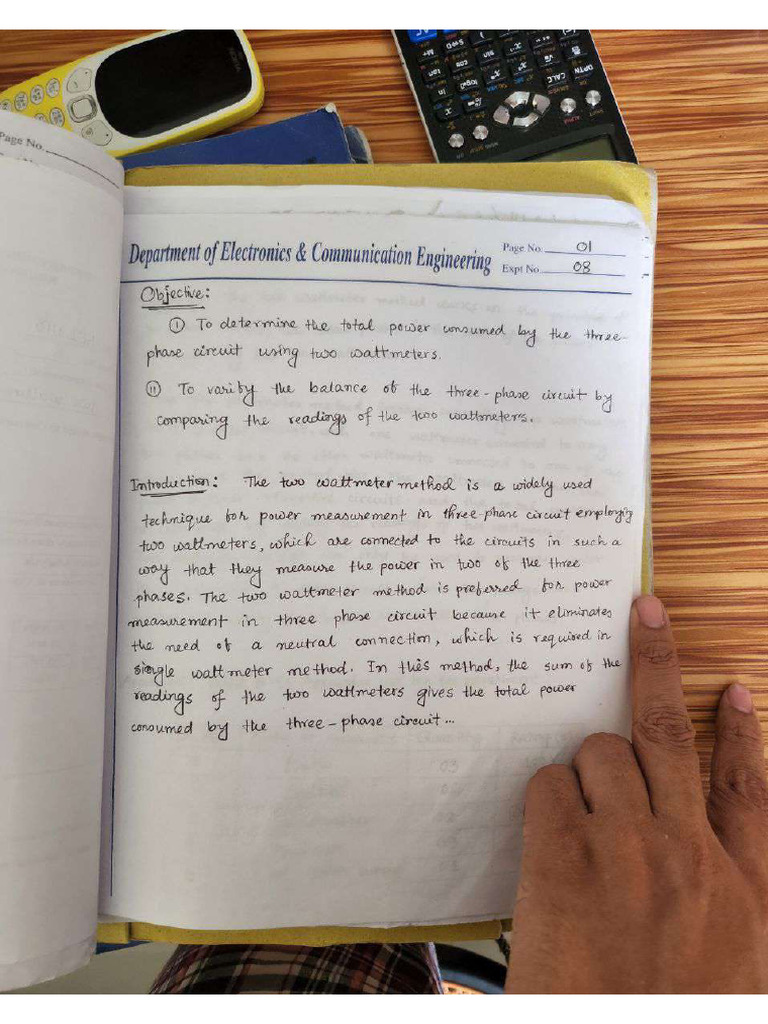 Page No.
Department of Electronics & Communication Engineering
Page No. 01
Expt No. 08
Objective:
① To determine the total power consumed by the three-
phase circuit using two wattmeters.
⑪ To varify the balance of the three-phase circuit by
comparing the readings of the two wattmeters.
Introduction: The two wattmeter method is a widely used
technique for power measurement in three-phase circuit employing
two wattmeters, which are connected to the circuits in such a
way that they measure the power in two of the three
phases. The two wattmeter method is preferred for power
measurement in three phase circuit because it eliminates
the need of a neutral connection, which is required in
single wattmeter method. In this method, the sum of the
readings of the two wattmeters gives the total power
consumed by the three-phase circuit...